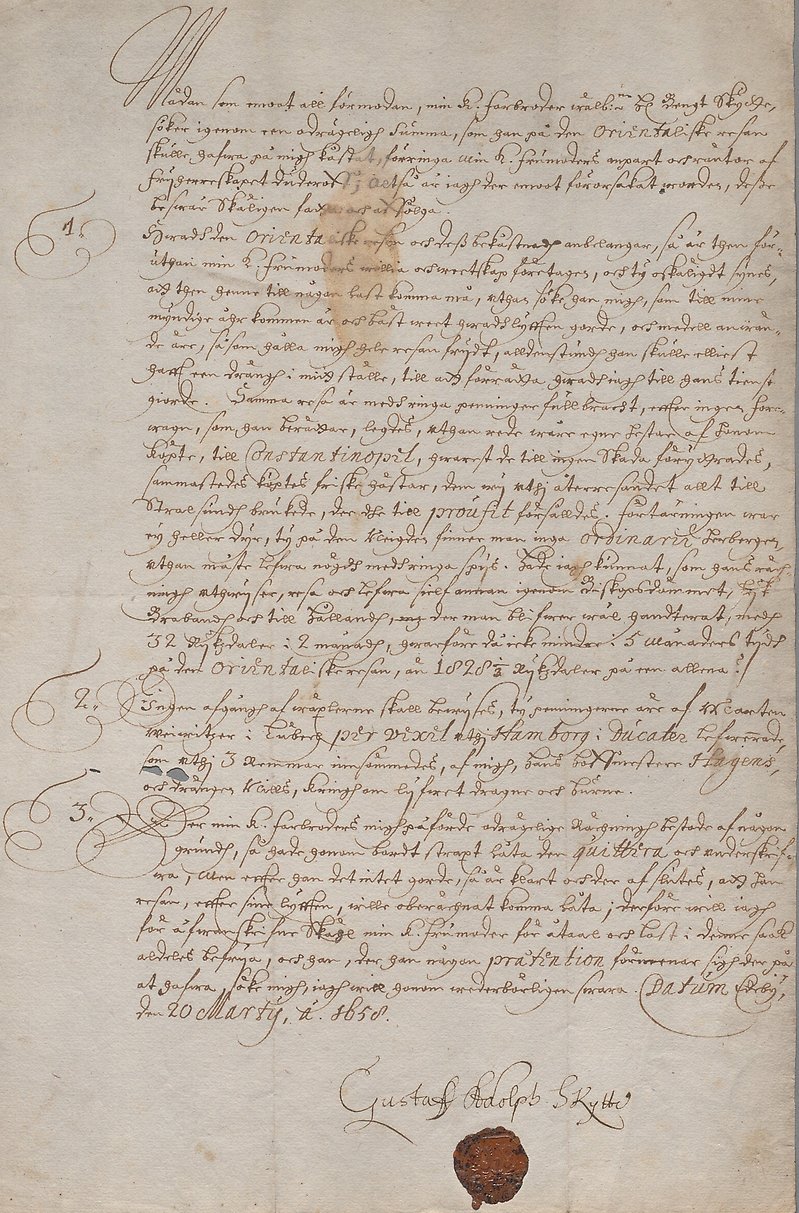 Mädan som emoot all förmodan, min K. farbroder wälb:ne H. Bengt Skytte,
söker igenom een odrägeligh Summa, som han på den Orientaliske resan
skulle hafwa på migh kåstat, förringa min K. frumoders anpart och räntor af
fryherreskapet Duderoff; Altså är iagh der emoot förorsakat worden, desse
beswär skäligen
1. Hwadh den Orientaliske resan och dess bekåstnadh anbelangar, så är then för-
uthan min K. frumoders willia och weetskap företagen, och ty oskäligdt synes,
att then henne till någon last komma må, uthan söke han migh, som till mine
myndige åhr kommen är och bäst weet hwadh lyfften giorde, och medell anwän-
de äre, så som hålla migh hele resan frydt, alldenstundh han skulle elliest
hafft een drängh i mitt ställe, till att förrätta hwadh iagh till hans tienst
giorde. Samma resa är medh ringa penninger fullbracht, effter ingen fore-
wagn, som han berättar, legdes, uthan rede wåre egne hestar af honom
köpte, till Constantinopel, hwarest de till ingen skada förythrades,
sammastedes köptes friske hästar, dem wij uthi återresandet allt till
Stralsundh brukede, der dhe till proufit försålldes. Förtäringen war
ey heller dyr, ty på den Neigden finner man inga ordinarie herberger,
uthan måste lefwa nögdh medh ringa spijs. Hade iagh kunnat, som hans räch-
ningh uthwijser, resa och lefwa sielf annan igenom Biskopsdömmet,
Brabandh och till Hollandh, der man blifwer wäl handterat, medh
32 Rykzdaler i 2 månadh, hwarföre då icke mindre i 5 Månaders tydh
på den Orientaliske resan, än 1828½ Rykzdaler på een allena?
2. Ingen afgångh af wäxlerne skall bewyses, ty penningerne äre af Marten
Weiwitzer i Lübech per vexel uthi Hamborg i Ducater lefwerade
som uthi 3 Remmar insömmades, af migh, hans hoffmestere Hagens,
och drängen Nills, kringh om lyfwet dragne och burne.
3. Der min K. farbroders migh påförde odrägelige Rächningh bestode af någon
grundh, så hade honom bordt strapt låta den quittera och underskrif-
wa, Men effter han det intet giorde, så är klart och der af slutes, att han
resan, effter sine lyfften, wille oberächnat komma låta; derföre will iagh
för åfwanskrefne Skähl min K. frumoder för åtaal och last i denne saak
aldeles befrya, och han, der han någon prætention förmeenar sigh der på
at hafwa, söke migh, iagh will honom wederbörligen swara. Datum Edeby,
den 20 Marty, A. 1658.
Gustaff Adolph Skytte